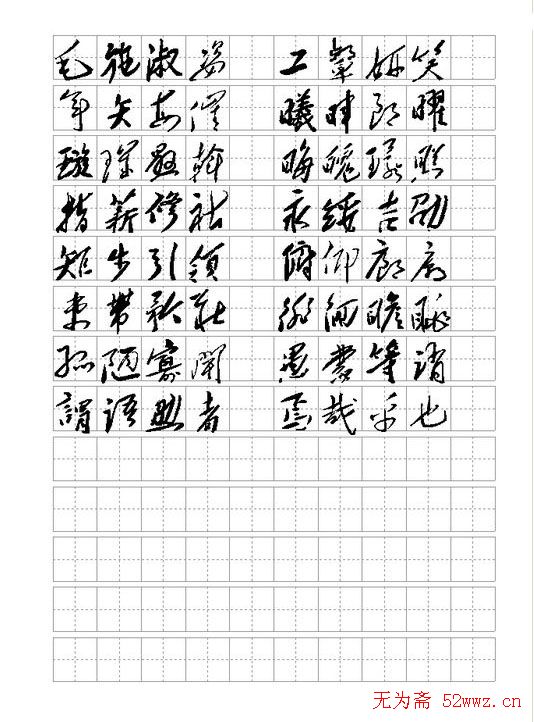 毛施淑姿 工顰妍笑
年矢每催 曦暉朗曜
璇璣懸斡 晦魄環照
指薪修祜 永綏吉劭
矩步引領 俯仰廊廟
束帶矜莊 徘徊瞻眺
孤陋寡聞 愚蒙等誚
謂語助者 焉哉乎也
无为斋 52wwz.cn